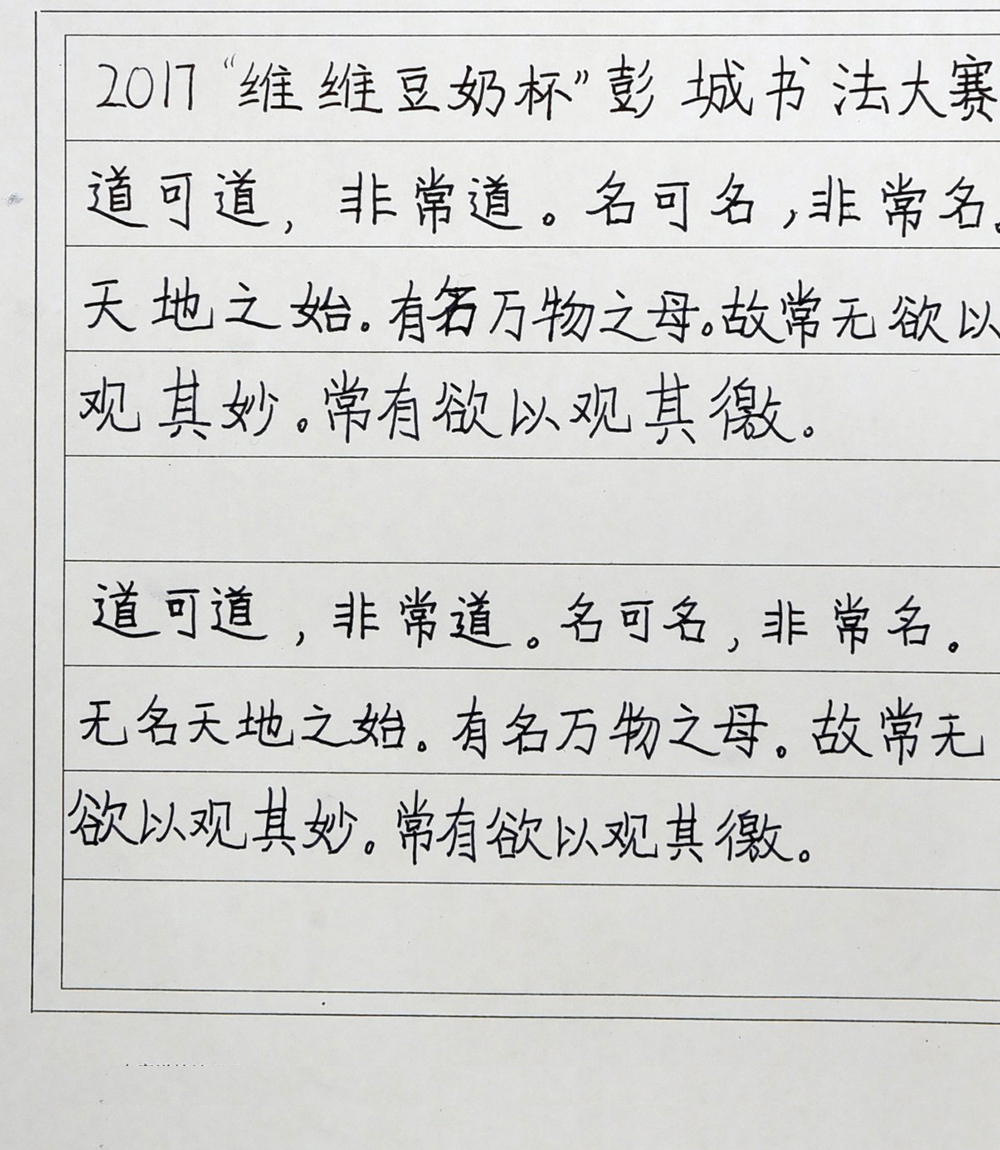 2017“维维豆奶杯”彭城书法大赛
道可道，非常道。名可名，非常名。
天地之始。有名万物之母。故常无欲以
观其妙。常有欲以观其徼。
道可道，非常道。名可名，非常名。
无名天地之始。有名万物之母。故常无
欲以观其妙。常有欲以观其徼。